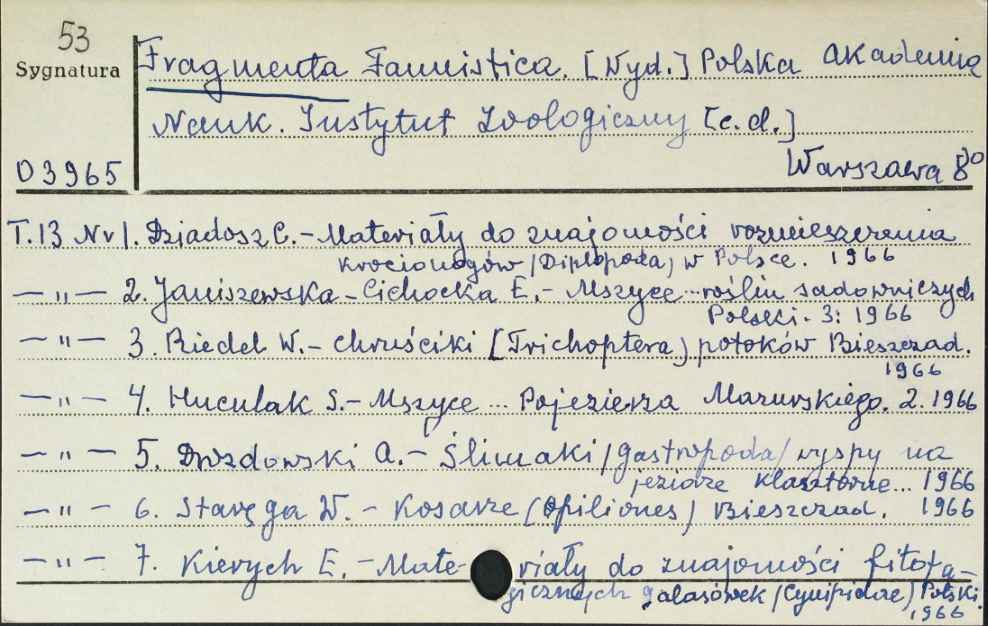 53
Sygnatura
D 3965
Fragmenta Faunistica. [Wyd.] Polska Akademia
Nauk. Instytut Zoologiczny [c.d.]
Warszawa 8º
T.13 Nr 1. Dziadosz C. - Materiały do znajomości rozmieszczenia
krocionogów /Diplopoda/ w Polsce. 1966
— " — 2. Janiszewska-Cichocka E. - Mszyce ... roślin sadowniczych
Polski. 3: 1966
— " — 3. Riedel W. - Chruściki [Trichoptera) potoków Bieszczad.
1966
— " — 4. Huculak S. - Mszyce ... Pojezierza Mazurskiego. 2. 1966
— " — 5. Drozdowski A. - Ślimaki /gastropoda/ wyspy na
jeziorze klasztorne... 1966
— " — 6. Staręga W. - Kosarze (Opiliones) Bieszczad. 1966
— " — 7. Kierych E. - Mate- riały do znajomości fitofa-
gicznych galasówek /Cynipidae) Polski.
1966